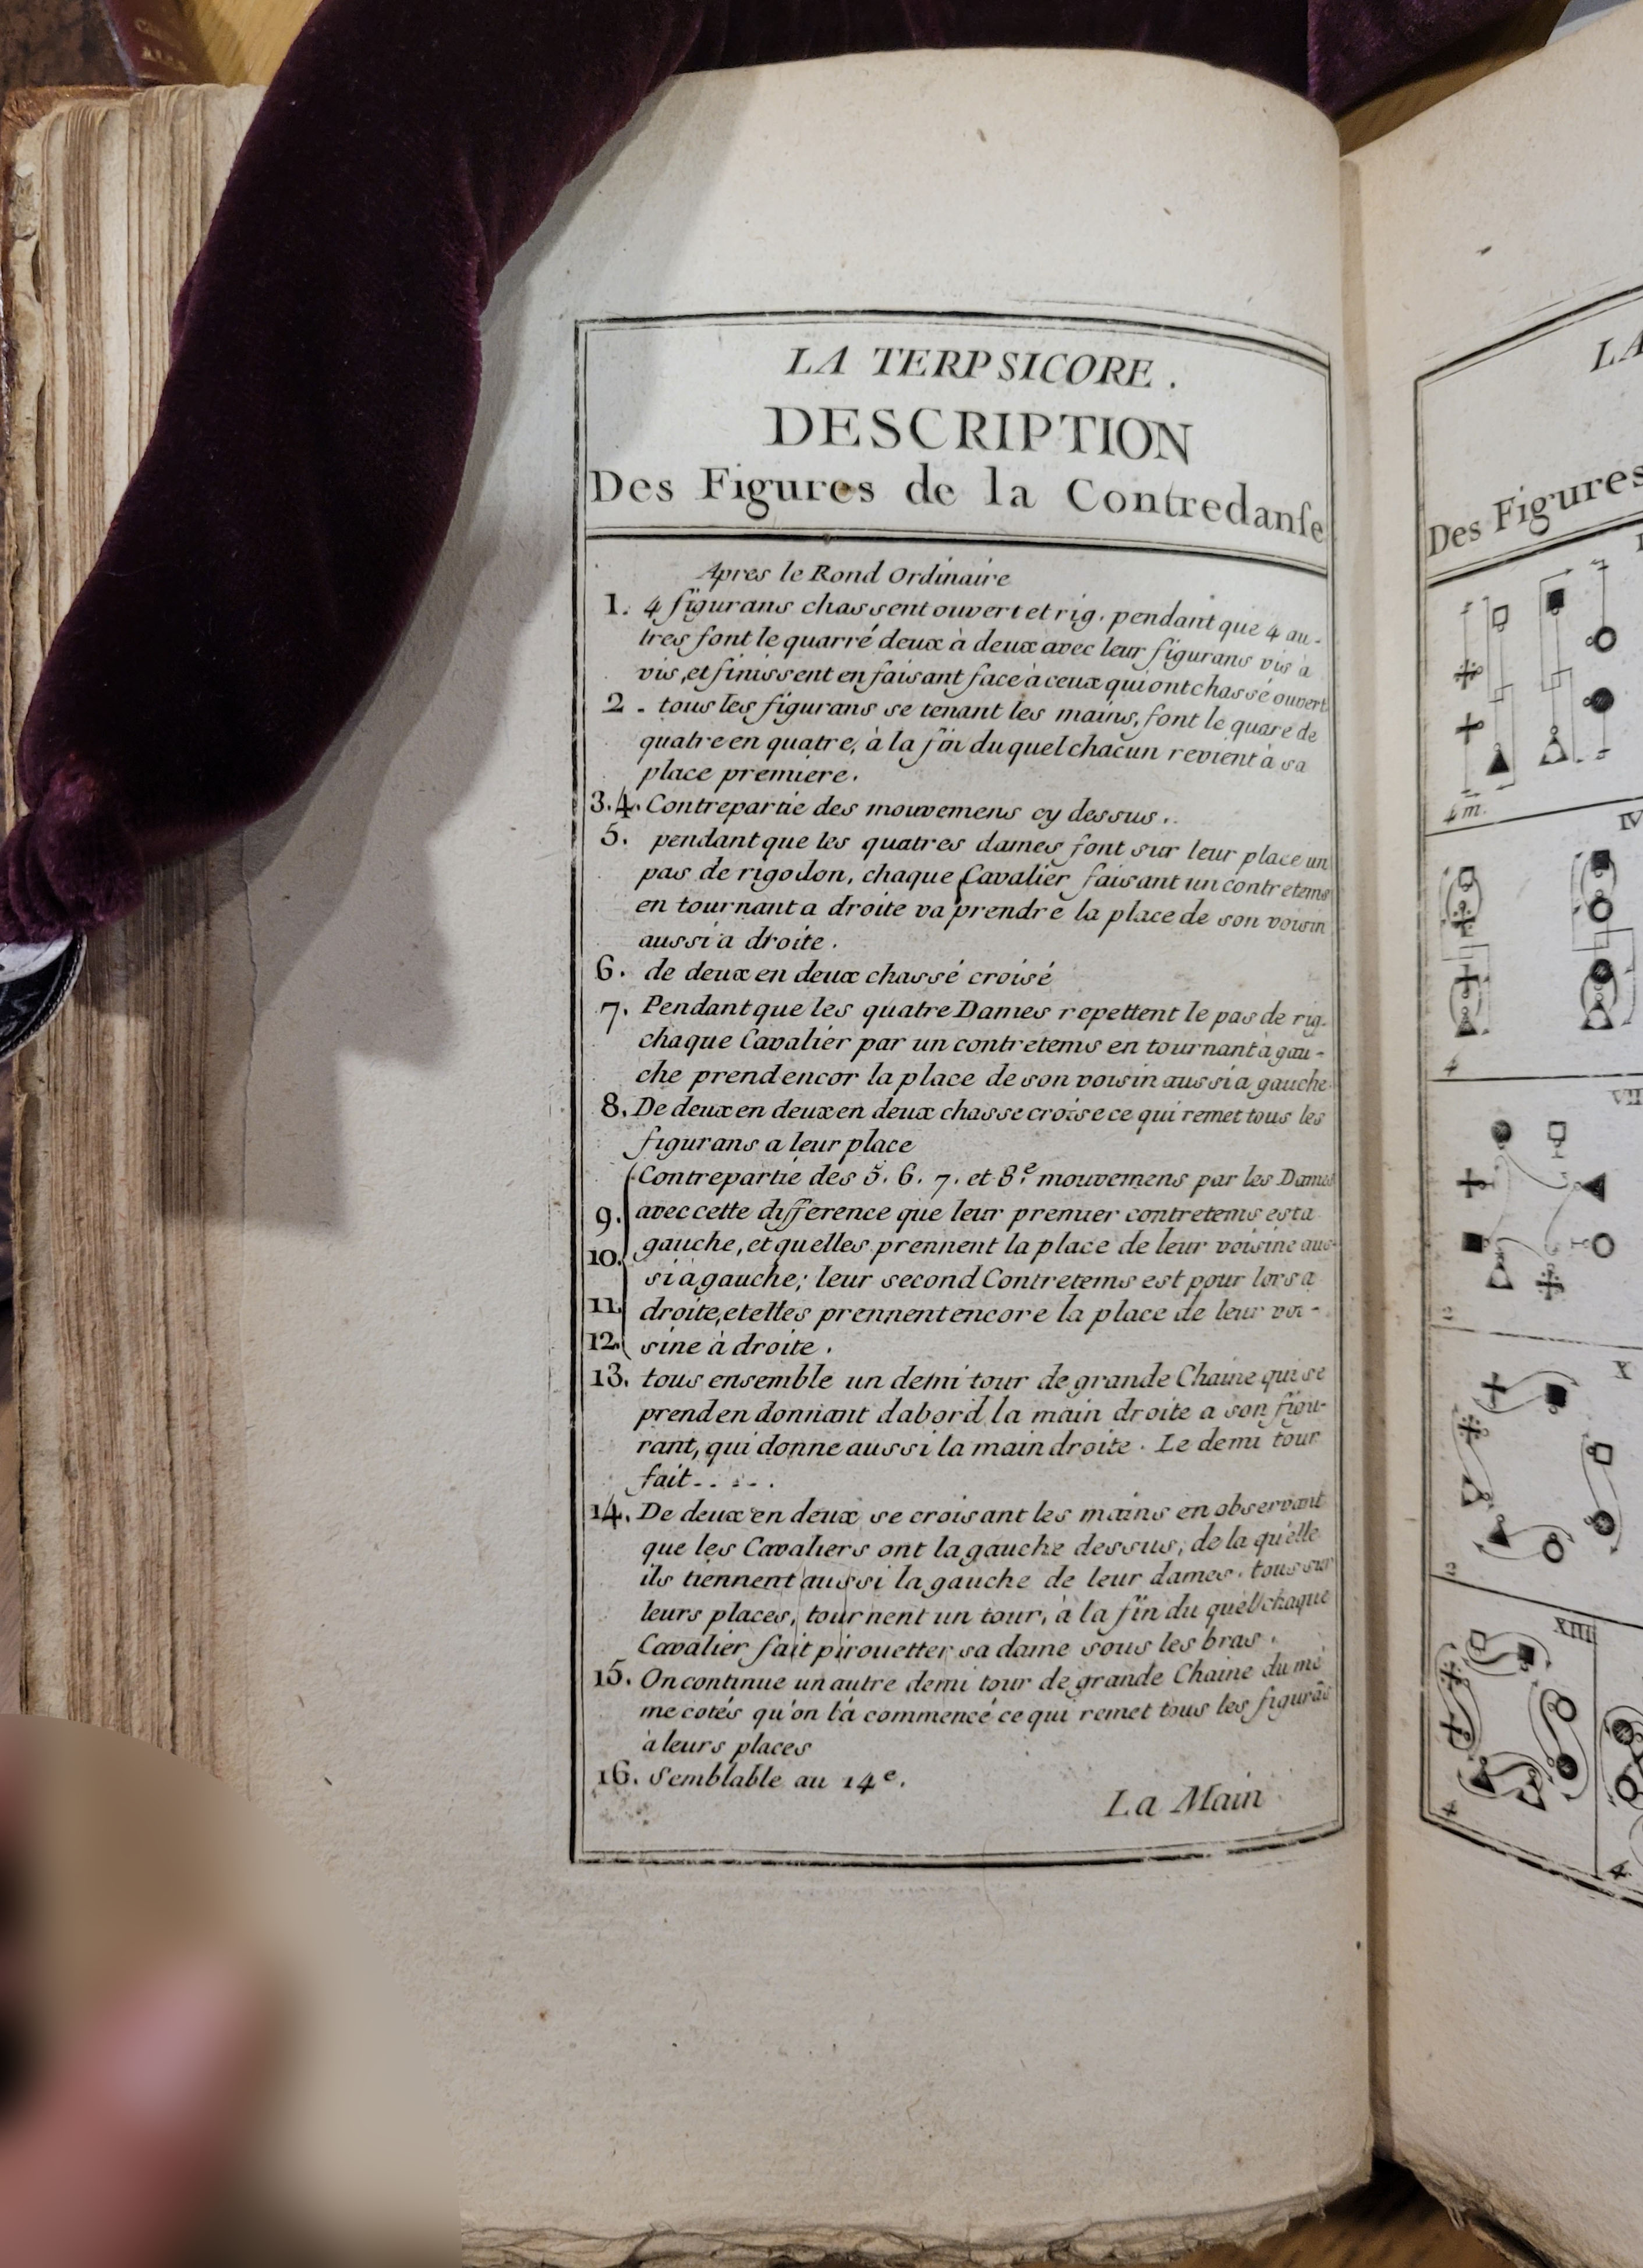 LA TERPSICORE.
DESCRIPTION
Des Figures de la Contredanſe
Apres le Rond Ordinaire
1. 4 figurans chassent ouvert et rig. pendant que 4 au-
tres font le quarré deux à deux avec leur figurans vis à
vis, et finissent en faisant face à ceux qui ont chassé ouvert
2. tous les figurans se tenant les mains, font le quare de
quatre en quatre, à la fin du quel chacun revient à sa
place premiere.
3.4. Contrepartie des mouvemens cy dessus.
5. pendant que les quatres dames font sur leur place un
pas de rigodon, chaque Cavalier faisant un contretems
en tournant a droite va prendre la place de son voisin
aussi a droite.
6. de deux en deux chassé croisé
7. Pendant que les quatre Dames repettent le pas de rig.
chaque Cavalier par un contretems en tournant à gau-
che prend encor la place de son voisin aussi a gauche
8. De deux en deux en deux chasse croise ce qui remet tous les
figurans a leur place
Contrepartie des 5. 6. 7. et 8.e mouvemens par les Dames
9. avec cette difference que leur premier contretems est a
10. gauche, et quelles prennent la place de leur voisine aus-
si à gauche; leur second Contretems est pour lors a
11. droite, et elles prennent encore la place de leur voi-
12. sine à droite.
13. tous ensemble un demi tour de grande Chaine qui se
prend en donnant dabord la main droite a son figu-
rant, qui donne aussi la main droite. Le demi tour
fait.....
14. De deux en deux se croisant les mains en observant
que les Cavaliers ont la gauche dessus, de la qu'elle
ils tiennent aussi la gauche de leur dames. tous sur
leurs places, tournent un tour, à la fin du quel chaque
Cavalier fait pirouetter sa dame sous les bras.
15. On continue un autre demi tour de grande Chaine du mê
me cotés qu'on l'à commencé ce qui remet tous les figurãs
à leurs places
16. Semblable au 14e.
La Main
LA
Des Figures
4 m.
IV
4
VII
2
X
2
XIII
4
4